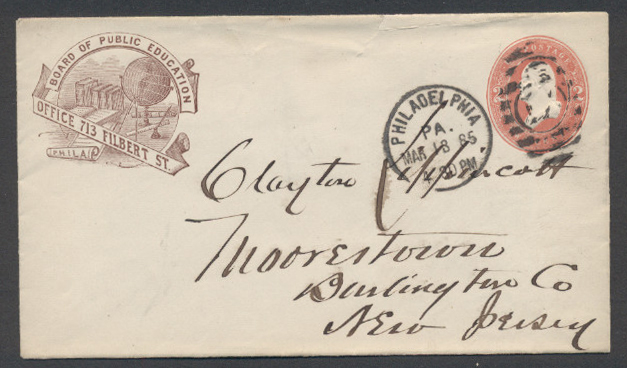 BOARD OF PUBLIC EDUCATION
OFFICE 713 FILBERT ST.
PHILA
PHILADELPHIA
PA.
MAR 18 85
30 PM
POSTAGE
Clayton Lippincott
Moorestown
Burlington Co
New Jersey